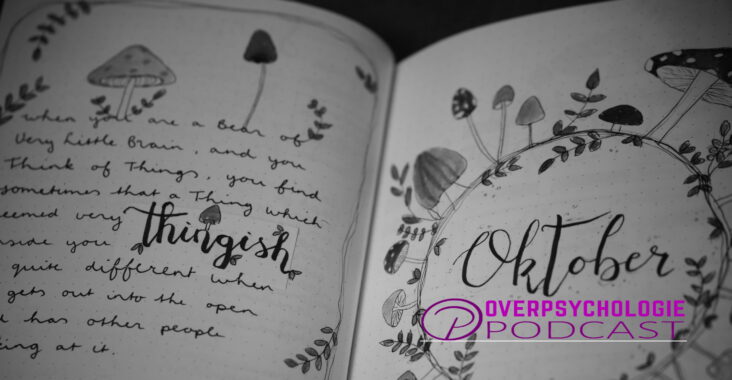 when you are a Bear of
Very Little Brain, and you
Think of Things, you find
sometimes that a Thing which
seemed very thingish
inside you
quite different when
gets out into the open
has other people
at it.
Oktober
OVERPSYCHOLOGIE
PODCAST